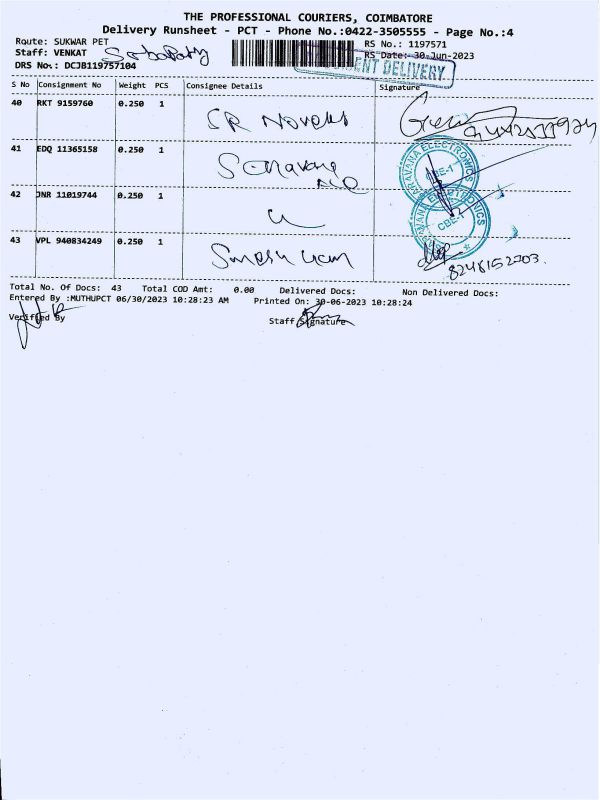 THE PROFESSIONAL COURIERS, COIMBATORE
Delivery Runsheet - PCT - Phone No.:0422-3505555 - Page No.:4
Route: SUKWAR PET
RS No.: 1197571
Staff: VENKAT
RS Date: 30-Jun-2023
DRS No.: DCJB119757104
ENT DELIVERY
S No Consignment No Weight PCS Consignee Details Signature
40 RKT 9159760 0.250 1 SR Novels
41 EDQ 11365158 0.250 1
SARAVANA ELECTRONICS
CBE-1
42 JNR 11019744 0.250 1
SARAVANA ELECTRONICS
CBE-1
43 VPL 940834249 0.250 1
8248152003
Total No. Of Docs: 43 Total COD Amt: 0.00 Delivered Docs: Non Delivered Docs:
Entered By :MUTHUPCT 06/30/2023 10:28:23 AM Printed On: 30-06-2023 10:28:24
Verified By
Staff Signature